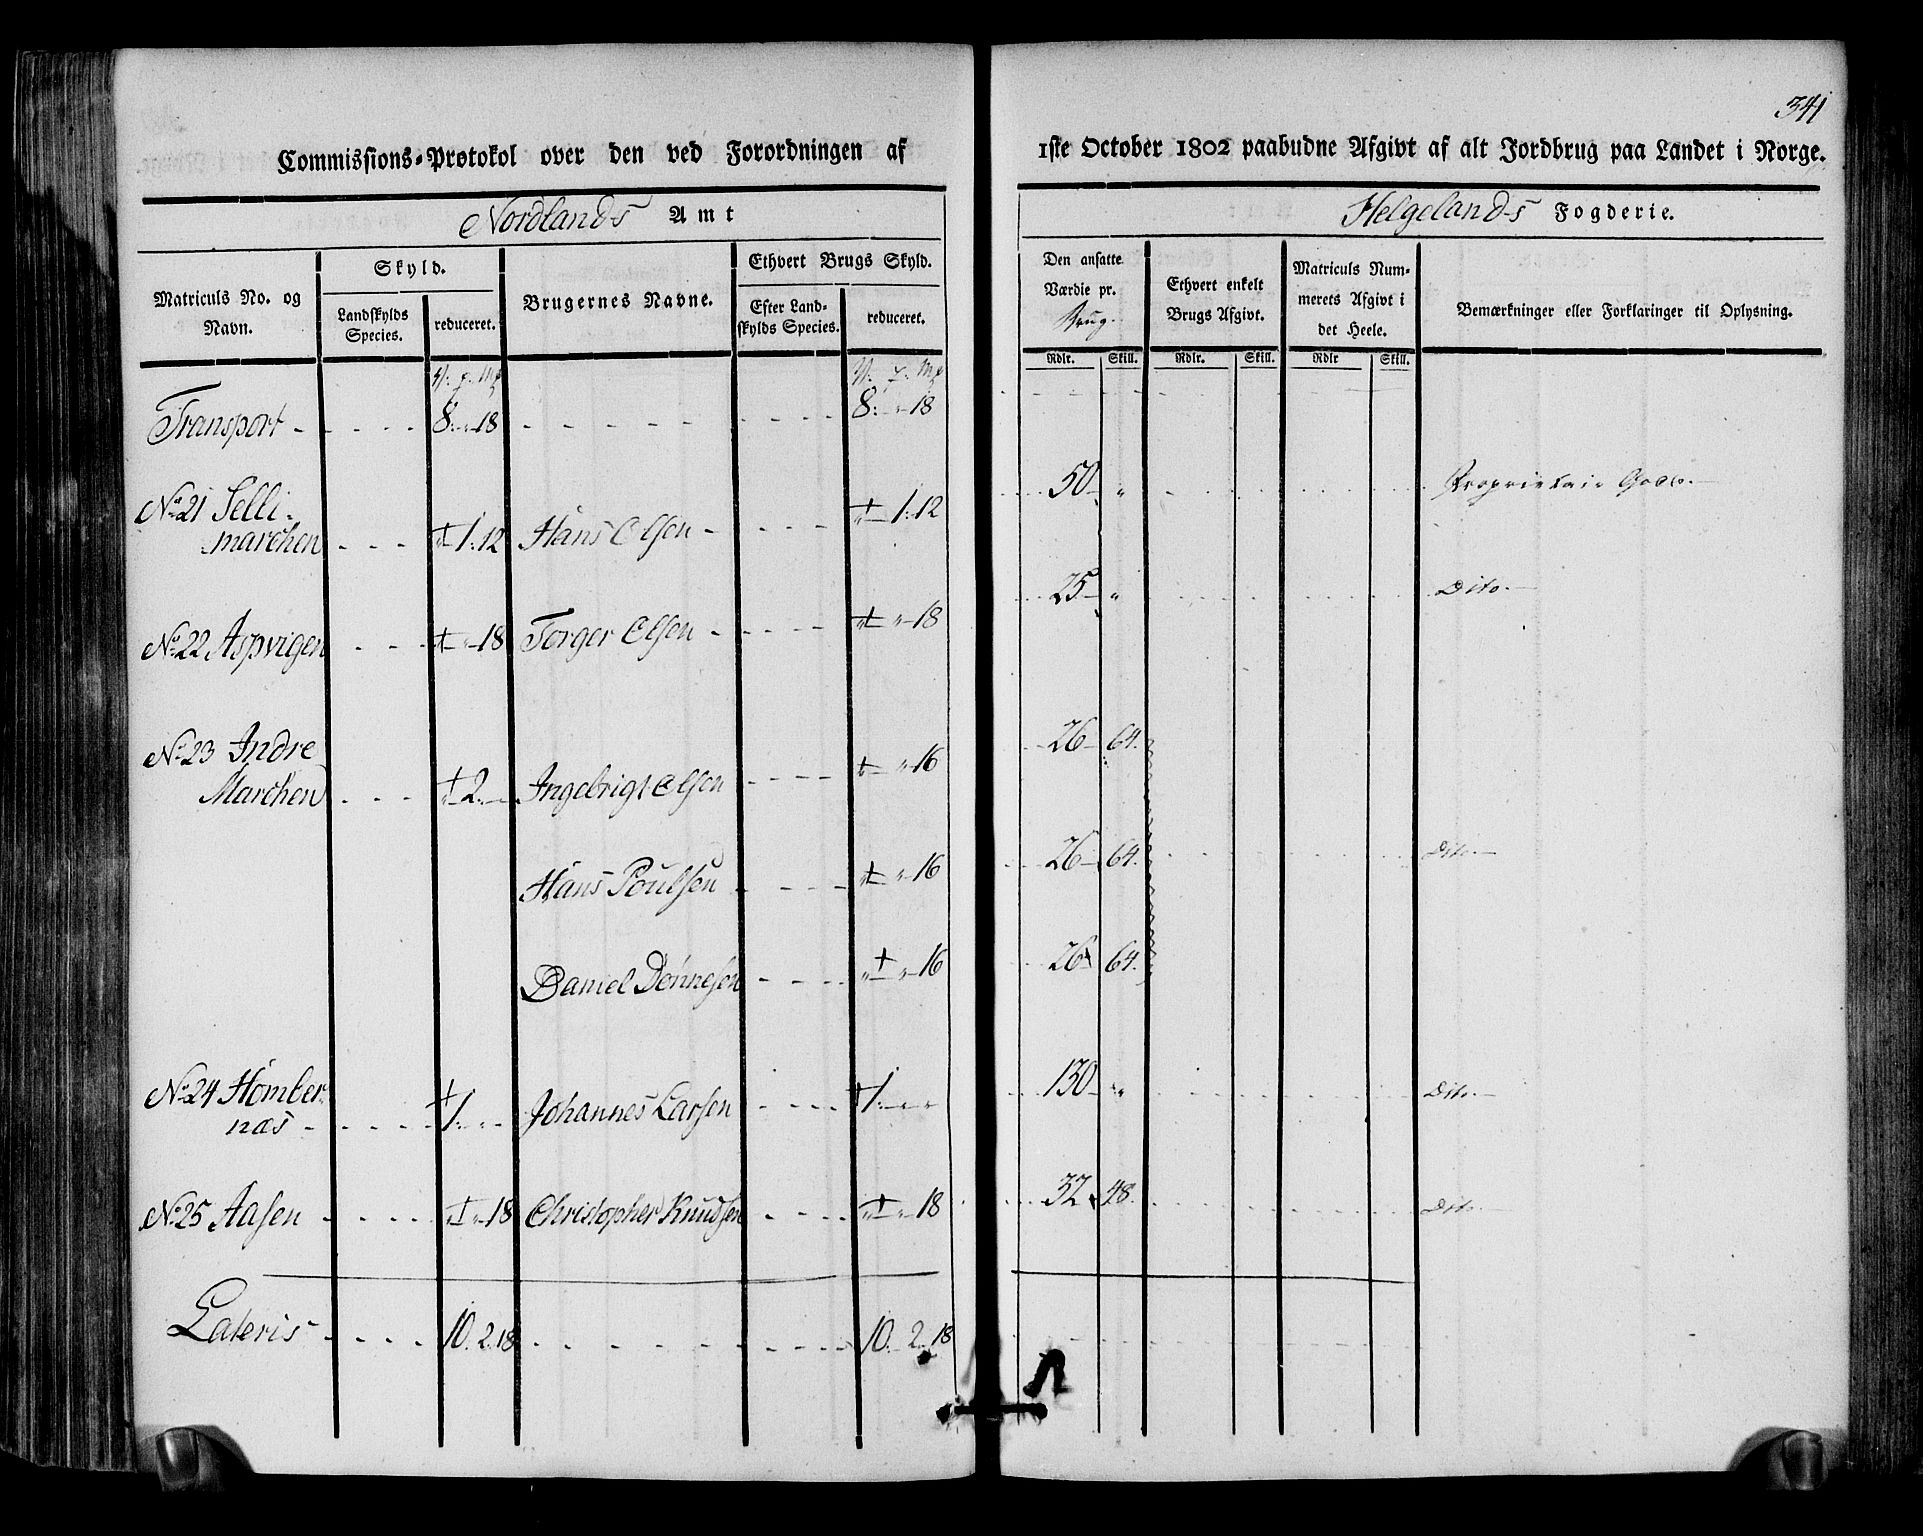 341
Commissions-Protokol over den ved Forordningen af 1ste October 1802 paabudne Afgivt af alt Jordbrug paa Landet i Norge.
Nordlands Amt
Helgelands Fogderie.
Matriculs No. og Navn.
Skyld.
Landskylds Species.
reduceret.
Brugernes Navne.
Ethvert Brugs Skyld.
Efter Landskylds Species.
reduceret.
Den ansatte Værdie pr. Brug.
Ethvert enkelt Brugs Afgivt.
Matriculs Nummerets Afgivt i det Heele.
Bemærkninger eller Forklaringer til Oplysning.
Rdlr. Skill. Rdlr. Skill. Rdlr Skill.
Transport - 8: " 18 - 8: " 18
No 21 Selli-
marchen - 1: 12 Hans Olsen - 1: 12 50 " Proprietair Gods.
No 22 Aspvigen - " 18 Torger Olsen - " 18 25 " Dito.
No 23 Indre
Marchen - 2: - Ingebrigt Olsen - " 16 26 64.
Hans Poulsen - " 16 26 64. Dito.
Daniel Dønnesen - " 16 26 64.
No 24 Homber-
næs - 1: " " Johannes Larsen - 1: " " 130 " Dito.
No 25 Aasen - " 18 Christopher Knudsen - " 18 32 48. Dito.
Lateris - 10. 2. 18 - 10. 2. 18